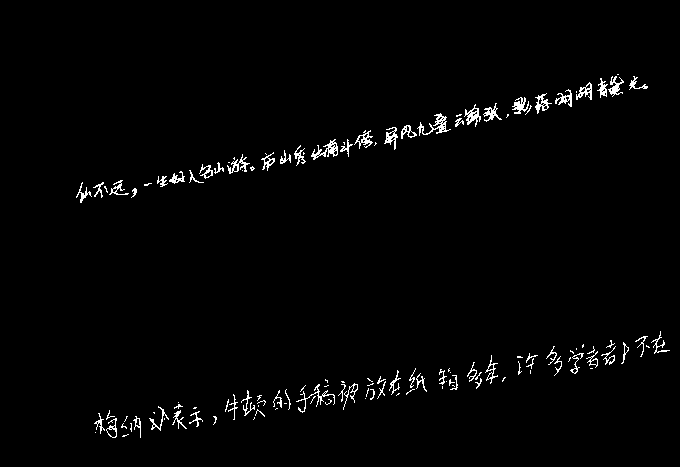 仙不远，一生好入名山游。庐山秀出南斗傍，屏风九叠云锦张，影落明湖青黛光。
梅纳以表示，牛顿的手稿被放在纸箱多年，许多学者都不在